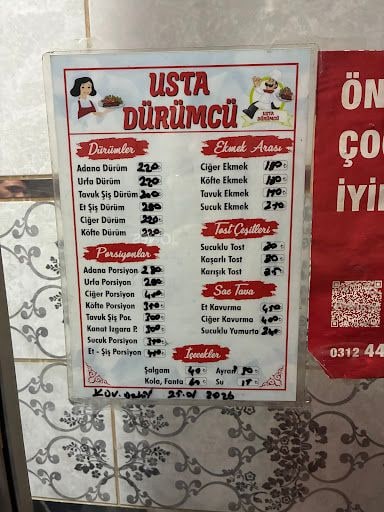 USTA
DÜRÜMCÜ
USTA
DÜRÜMCÜ
Dürümler
Adana Dürüm 220
Urfa Dürüm 220
Tavuk Şiş Dürüm 200
Et Şiş Dürüm 280
Ciğer Dürüm 220
Köfte Dürüm 220
Porsiyonlar
Adana Porsiyon
Urfa Porsiyon
Ciğer Porsiyon 400
Köfte Porsiyon
Tavuk Şiş Por. 300
Kanat Izgara P. 300
Sucuk Porsiyon
Et - Şiş Porsiyon
Ekmek Arası
Ciğer Ekmek
Köfte Ekmek
Tavuk Ekmek
Sucuk Ekmek 210
Tost Çeşitleri
Sucuklu Tost
Kaşarlı Tost 80
Karışık Tost
Sac Tava
Et Kavurma 450
Ciğer Kavurma 400
Sucuklu Yumurta
İçecekler
Şalgam 40 Ayran
Kola, Fanta 60 Su 15
2026
ÖN
ÇO
İYİ
0312 44